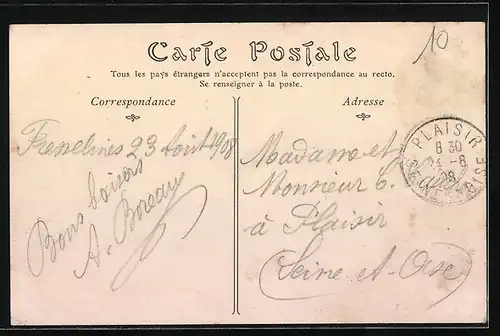 10
Carte Postale
Tous les pays étrangers n'acceptent pas la correspondance au recto.
Se renseigner à la poste.
Correspondance
Adresse
23 Août 1908
Bons baisers
A.
Madame et
Monsieur C.
à Plaisir
(Seine et Oise)
PLAISIR
8 30
24 -8
08
SEINE-ET-OISE